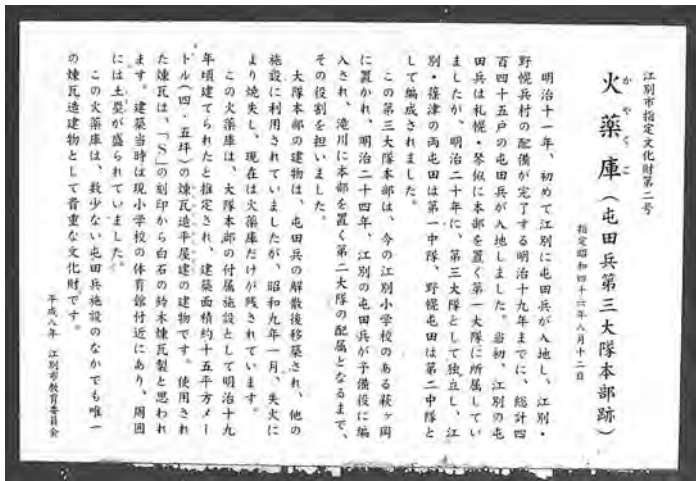 江別市指定文化財第二号
火薬庫(屯田兵第三大隊本部跡)
かやくこ
指定昭和四十六年八月十二日
明治十一年、初めて江別に屯田兵が入地し、江別・
野幌兵村の配備が完了する明治十九年までに、総計四
百四十五戸の屯田兵が入地しました。当初、江別の屯
田兵は札幌・琴似に本部を置く第一大隊に所属してい
ましたが、明治二十年に、第三大隊として独立し、江
別・篠津の両屯田は第一中隊、野幌屯田は第二中隊と
して編成されました。
この第三大隊本部は、今の江別小学校のある萩ヶ岡
に置かれ、明治二十四年、江別の屯田兵が予備役に編
入され、滝川に本部を置く第二大隊の配属となるまで、
その役割を担いました。
大隊本部の建物は、屯田兵の解散後移築され、他の
施設に利用されていましたが、昭和九年一月、失火に
より焼失し、現在は火薬庫だけが残されています。
この火薬庫は、大隊本部の付属施設として明治十九
年頃建てられたと推定され、建築面積約十五平方メー
トル(四・五坪)の煉瓦造平屋建の建物です。使用され
た煉瓦は、「S」の刻印から白石の鈴木煉瓦製と思われ
ます。建築当時は現小学校の体育館付近にあり、周囲
には土塁が盛られていました。
この火薬庫は、数少ない屯田兵施設のなかでも唯一
の煉瓦造建物として貴重な文化財です。
平成八年 江別市教育委員会